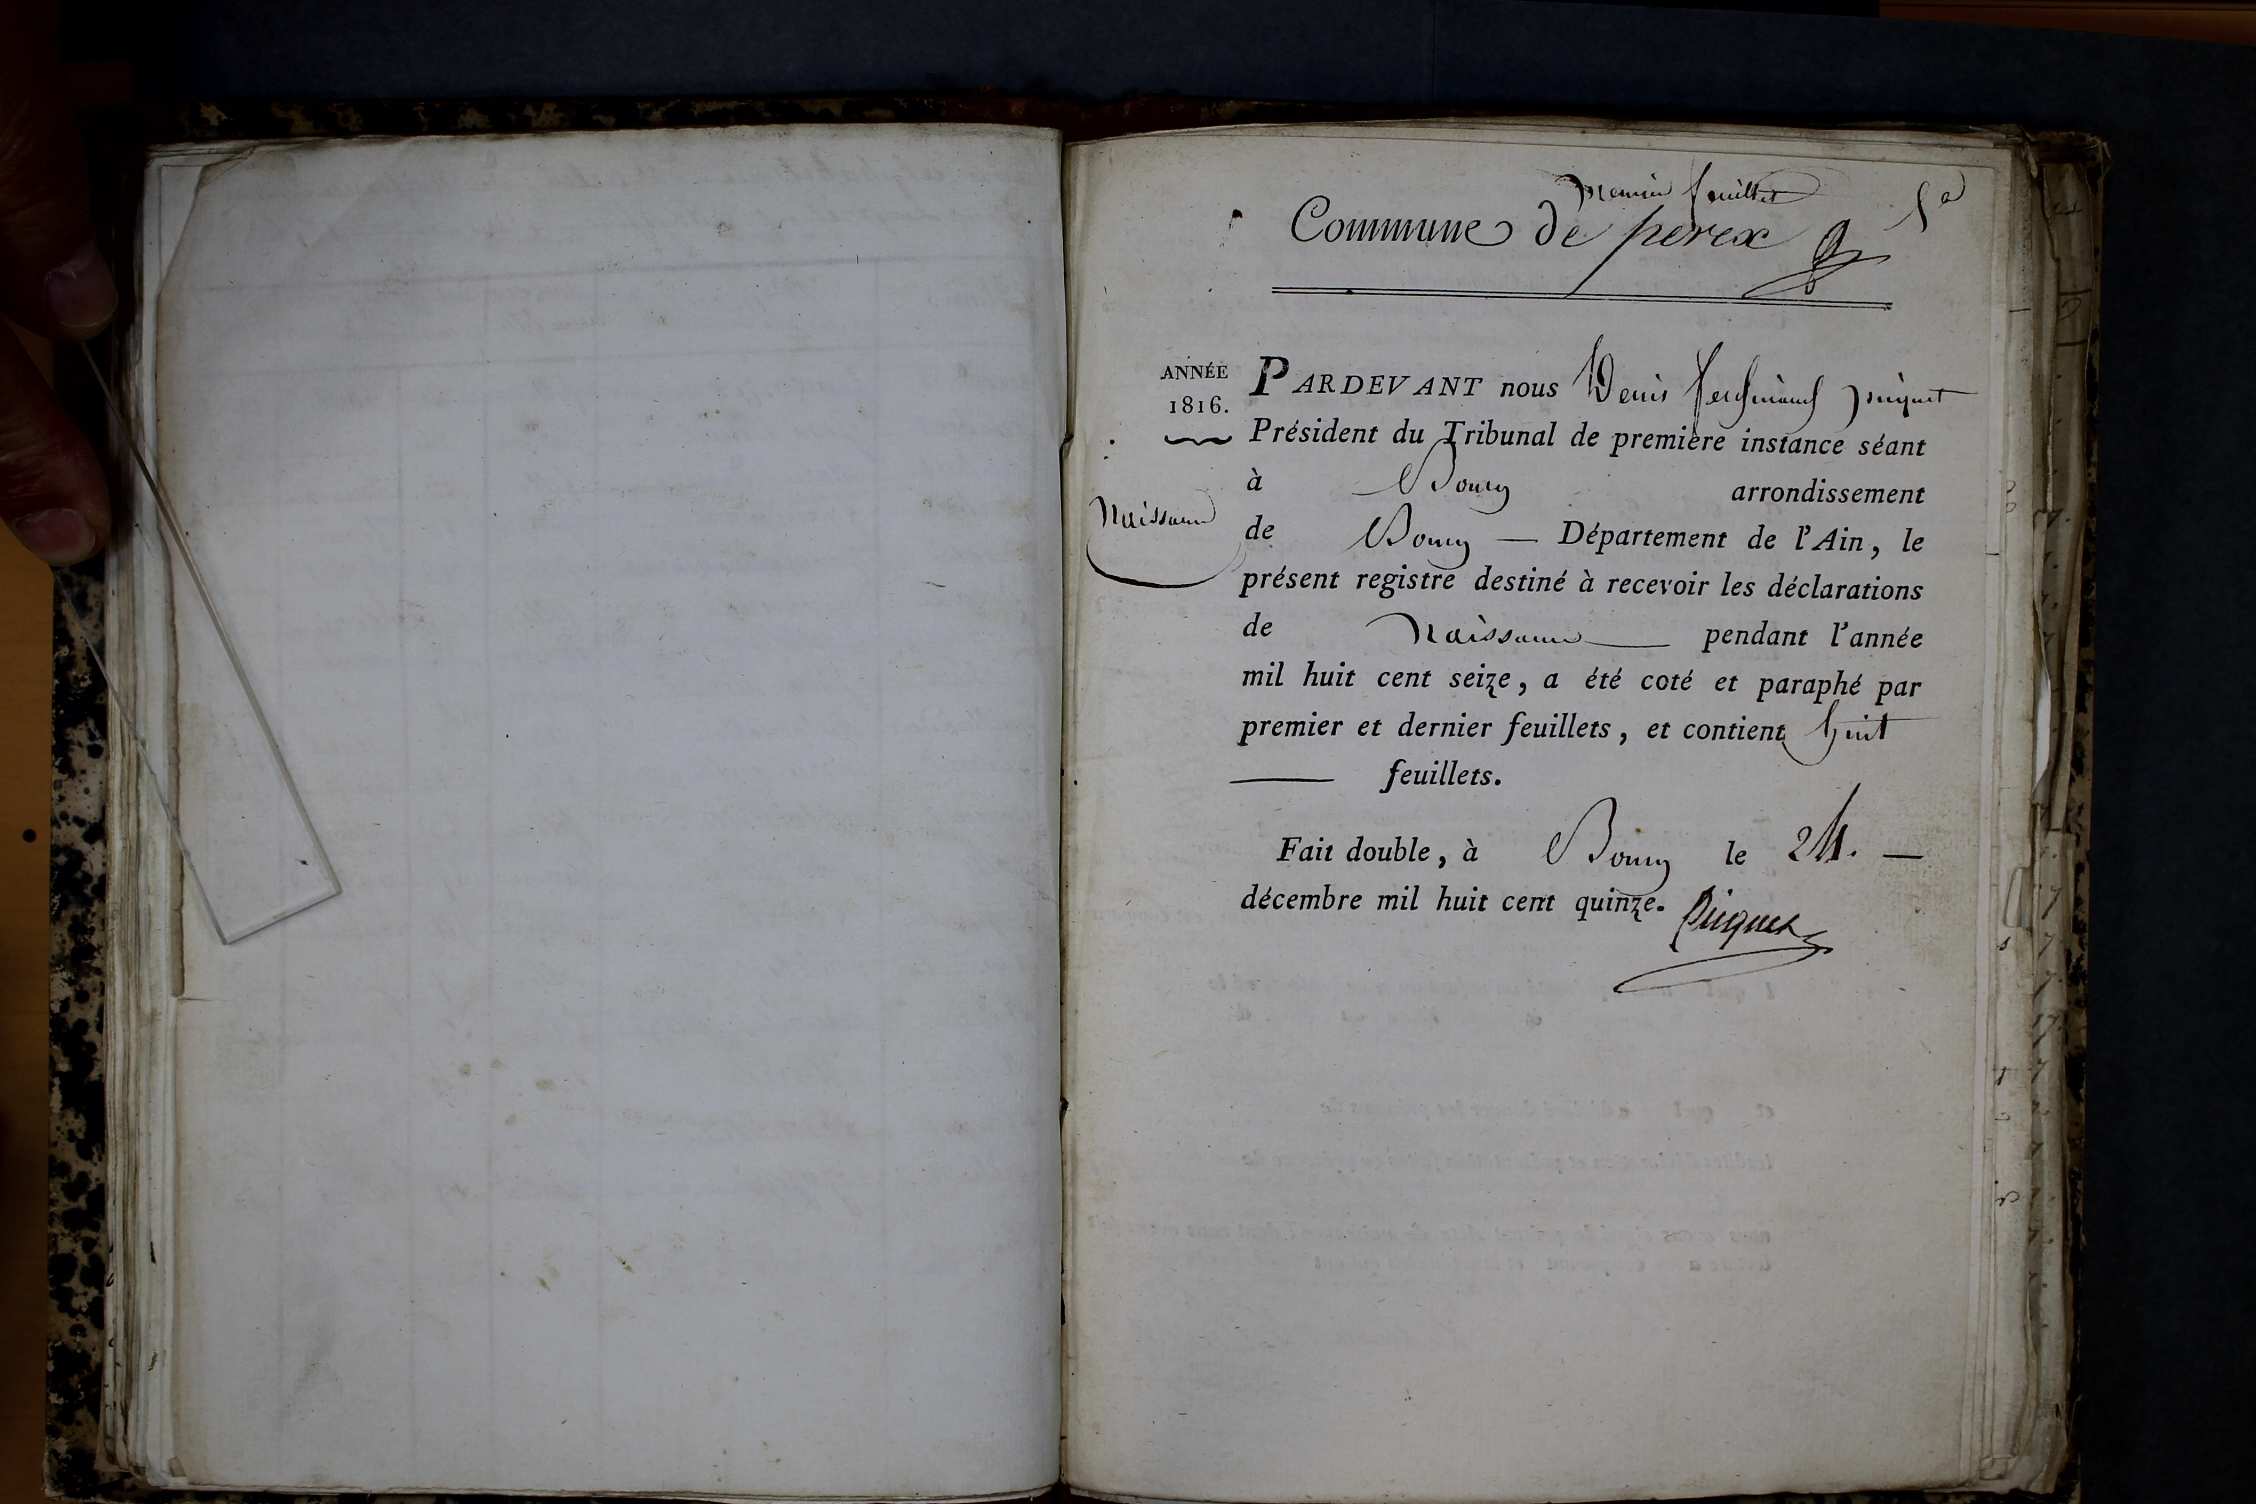 premier feuillet
Commune de perex
ANNÉE
1816.
PARDEVANT nous Denis ferdinand piquet
Président du Tribunal de première instance séant
à Bourg arrondissement
Naissance
de Bourg — Département de l'Ain, le
présent registre destiné à recevoir les déclarations
de Naissance — pendant l'année
mil huit cent seize, a été coté et paraphé par
premier et dernier feuillets, et contient huit
— feuillets.
Fait double, à Bourg le 24. —
décembre mil huit cent quinze.
Piquet